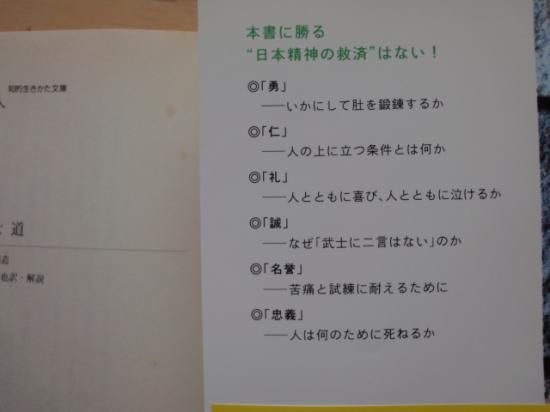 知的生きかた文庫
人
士道
造
也訳・解説
本書に勝る
“日本精神の救済”はない！
◎「勇」
――いかにして肚を鍛錬するか
◎「仁」
――人の上に立つ条件とは何か
◎「礼」
――人とともに喜び、人とともに泣けるか
◎「誠」
――なぜ「武士に二言はない」のか
◎「名誉」
――苦痛と試練に耐えるために
◎「忠義」
――人は何のために死ねるか